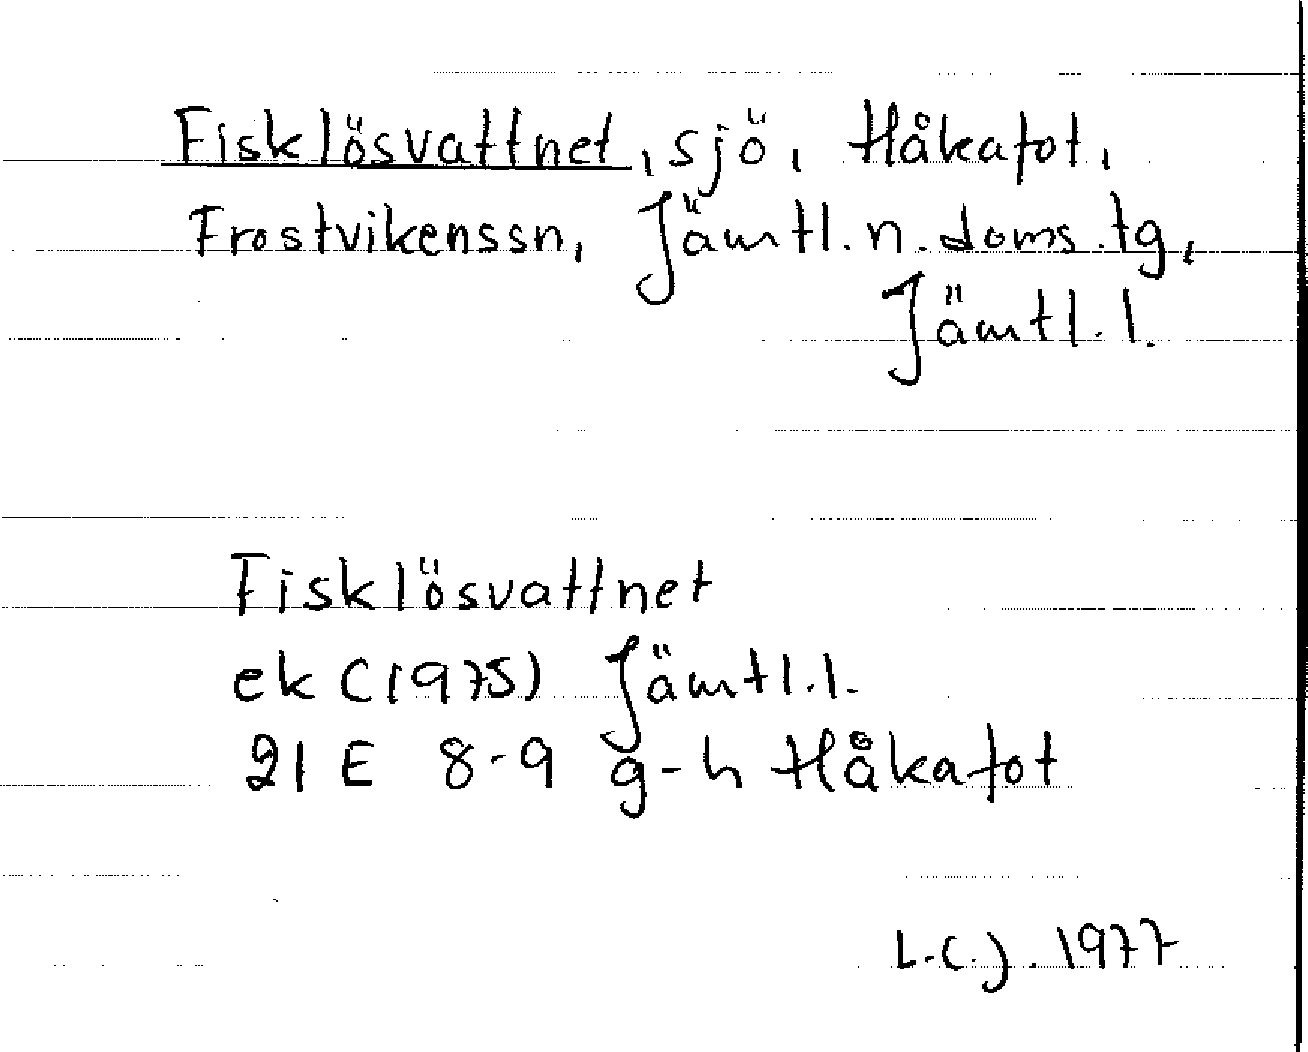 Fisklösvattnet, sjö, Håkafot,
Frostvikenssn, Jämtl. n. doms.tg,
Jämtl. l.
Fisklösvattnet
ek (1975) Jämtl. l.
21 E 8-9 g-h Håkafot
L.C.J. 1977